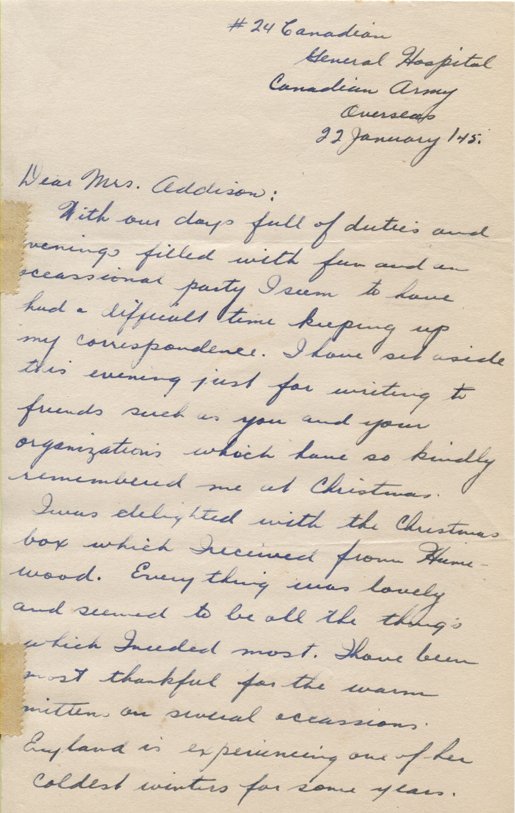 #24 Canadian
General Hospital
Canadian Army
Overseas
22 January/45.
Dear Mrs. Addison:
With our days full of duties and
evenings filled with fun and an
occassional party I seem to have
had a difficult time keeping up
my correspondence. I have set aside
this evening just for writing to
friends such as you and your
organizations which have so kindly
remembered me at Christmas.
I was delighted with the Christmas
box which I received from Hime-
wood. Everything was lovely
and seemed to be all the things
which I needed most. I have been
most thankful for the warm
mittens on several occassions.
England is experiencing one of her
coldest winters for some years.